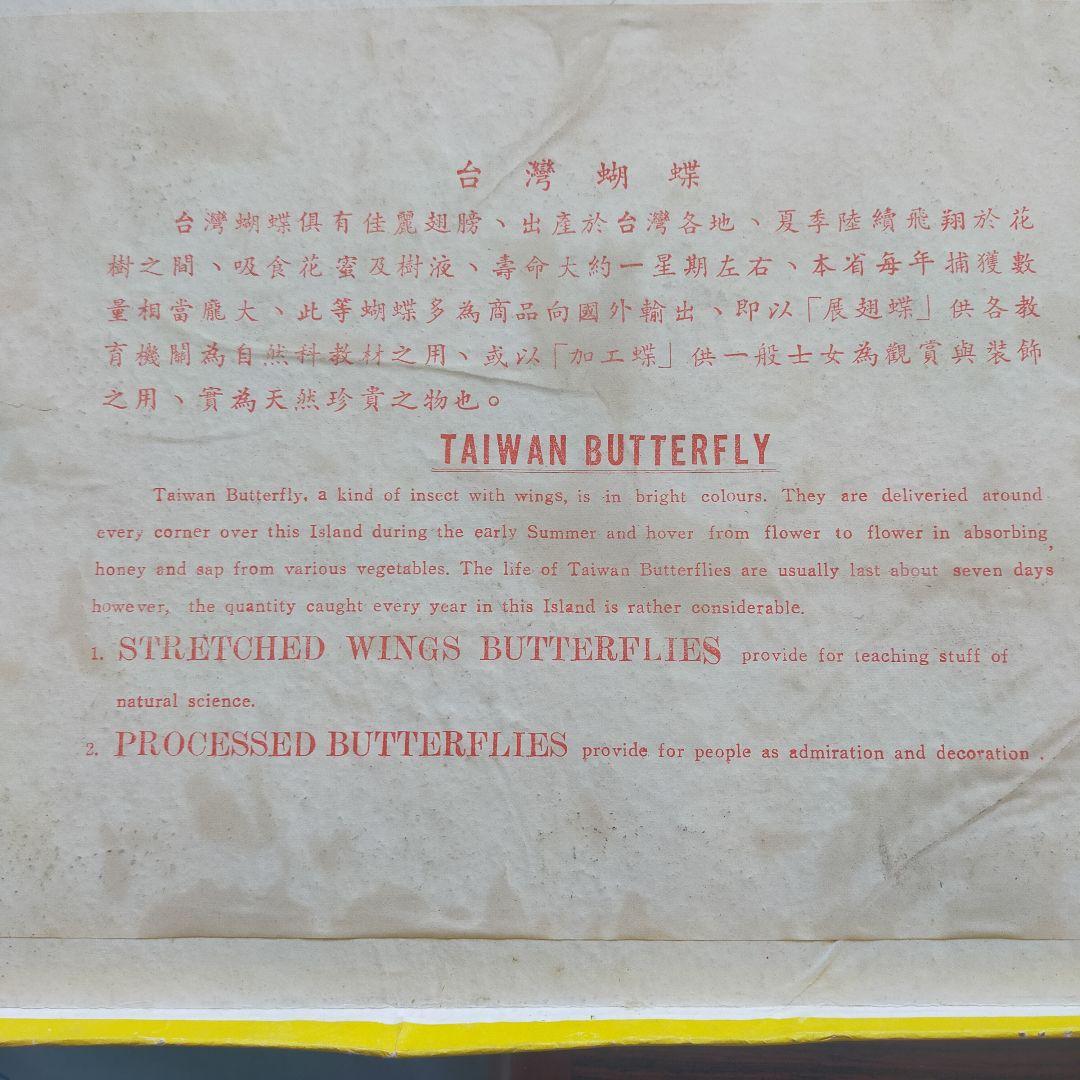 台灣蝴蝶
台灣蝴蝶俱有佳麗翅膀、出產於台灣各地、夏季陸續飛翔於花
樹之間、吸食花蜜及樹液、壽命大約一星期左右、本省每年捕獲數
量相當龐大、此等蝴蝶多為商品向國外輸出、即以「展翅蝶」供各教
育機關為自然科教材之用、或以「加工蝶」供一般士女為觀賞與裝飾
之用、實為天然珍貴之物也。
TAIWAN BUTTERFLY
Taiwan Butterfly, a kind of insect with wings, is in bright colours. They are deliveried around
every corner over this Island during the early Summer and hover from flower to flower in absorbing
honey and sap from various vegetables. The life of Taiwan Butterflies are usually last about seven days,
however, the quantity caught every year in this Island is rather considerable.
1. STRETCHED WINGS BUTTERFLIES provide for teaching stuff of
natural science.
2. PROCESSED BUTTERFLIES provide for people as admiration and decoration.